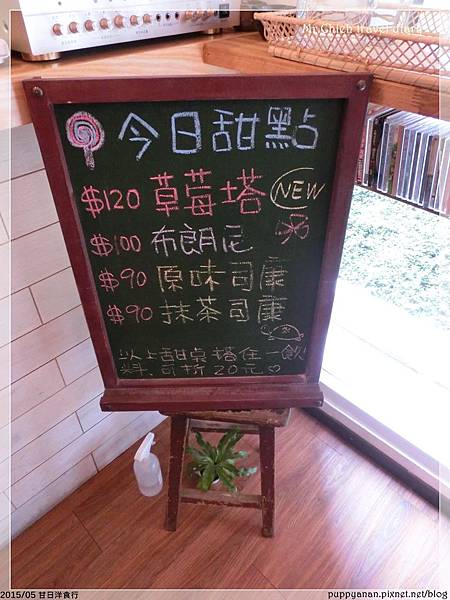 MyChieh travel diary
今日甜點
$120 草莓塔 NEW
$100 布朗尼
$90 原味司康
$90 抹茶司康
以上甜点搭任一飲
料,可折20元♡
2015/05 甘日洋食行
puppyanan.pixnet.net/blog